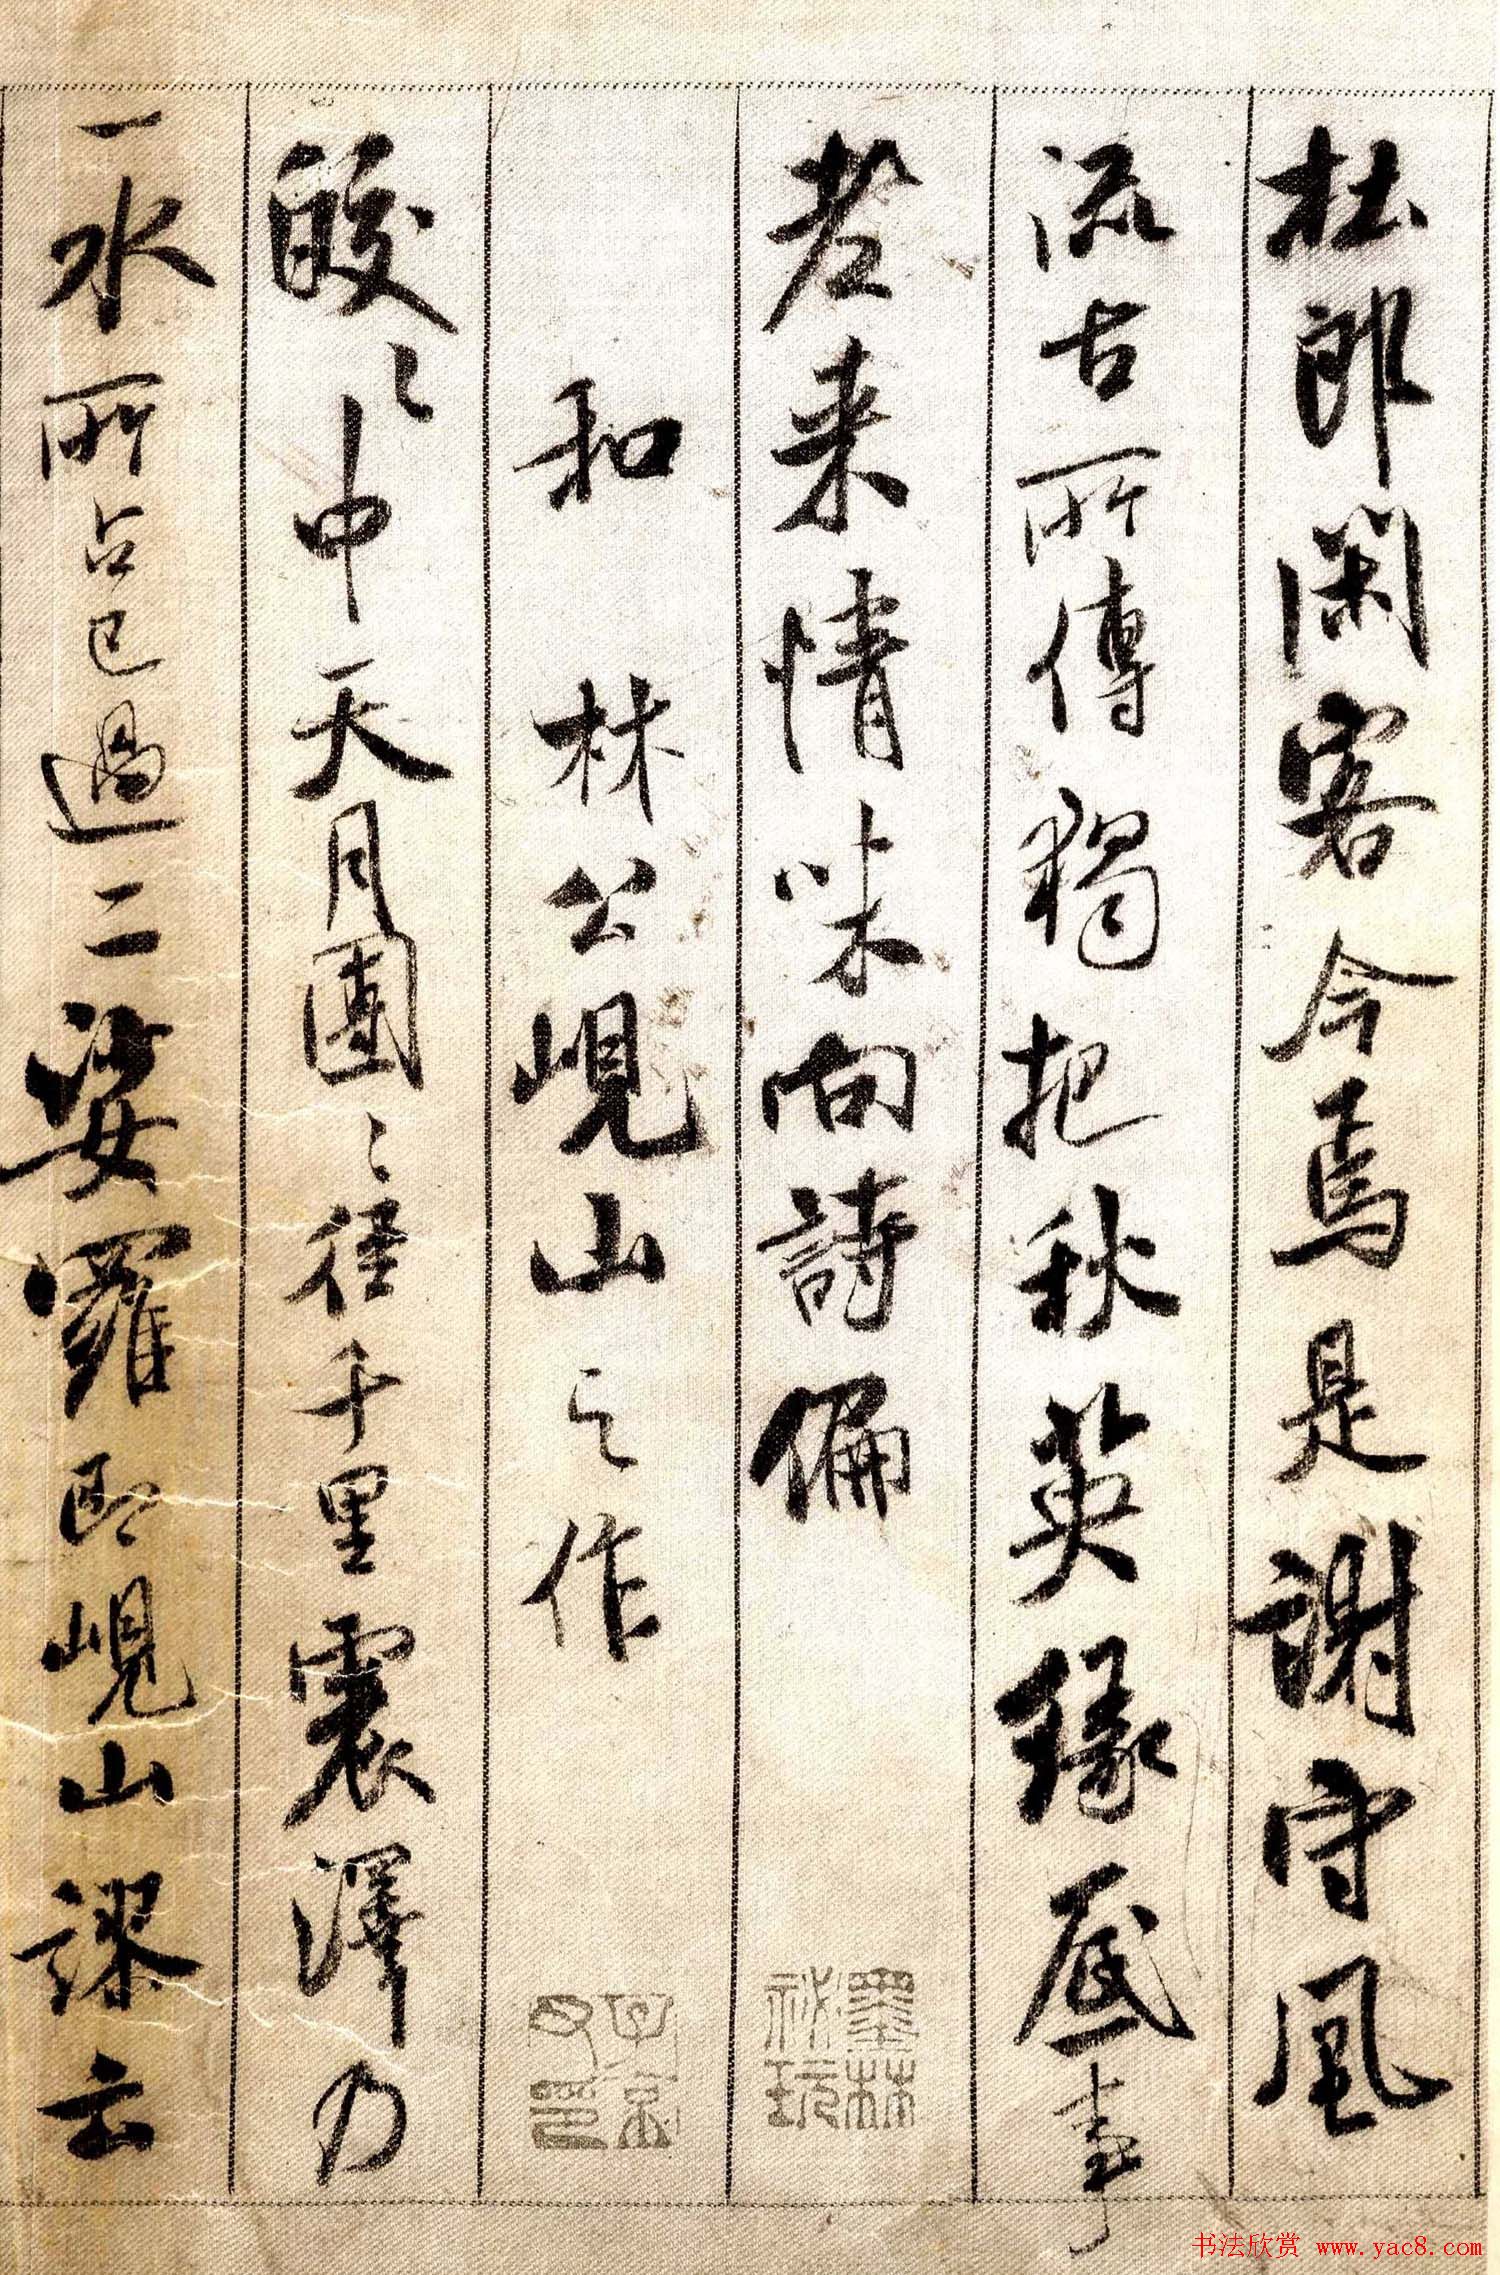 杜郎闲客今焉是謝守風
流古所傳獨把秋英緣底事
老来情味向詩偏
和林公峴山之作
皎〻中天月團〻徑千里震澤乃
一水所占已過二娑羅即峴山謬云
墨林秘玩
子京父印
书法欣赏 www.yac8.com